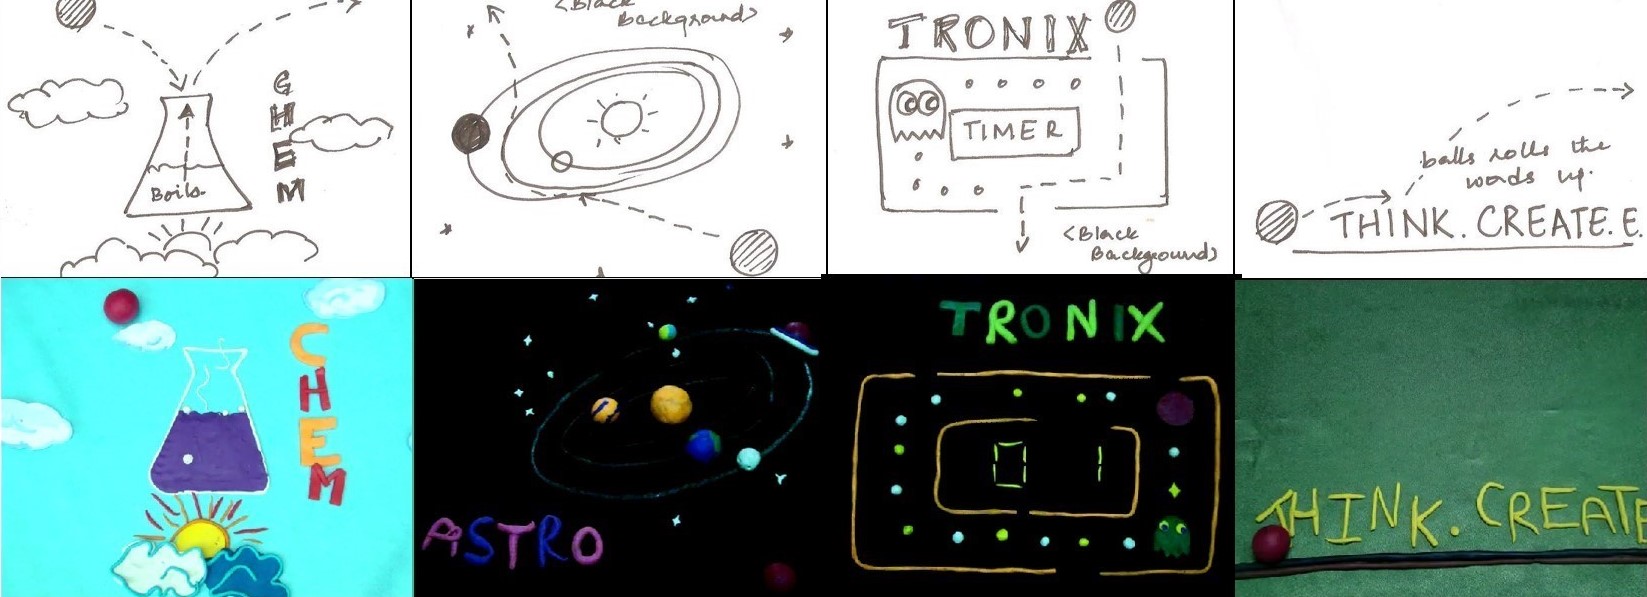 CHEM
Boils.
<Black
Background>
TRONIX
TIMER
<Black
Background>
balls rolls the
words up.
THINK. CREATE. E.
CHEM
ASTRO
TRONIX
01
THINK. CREATE